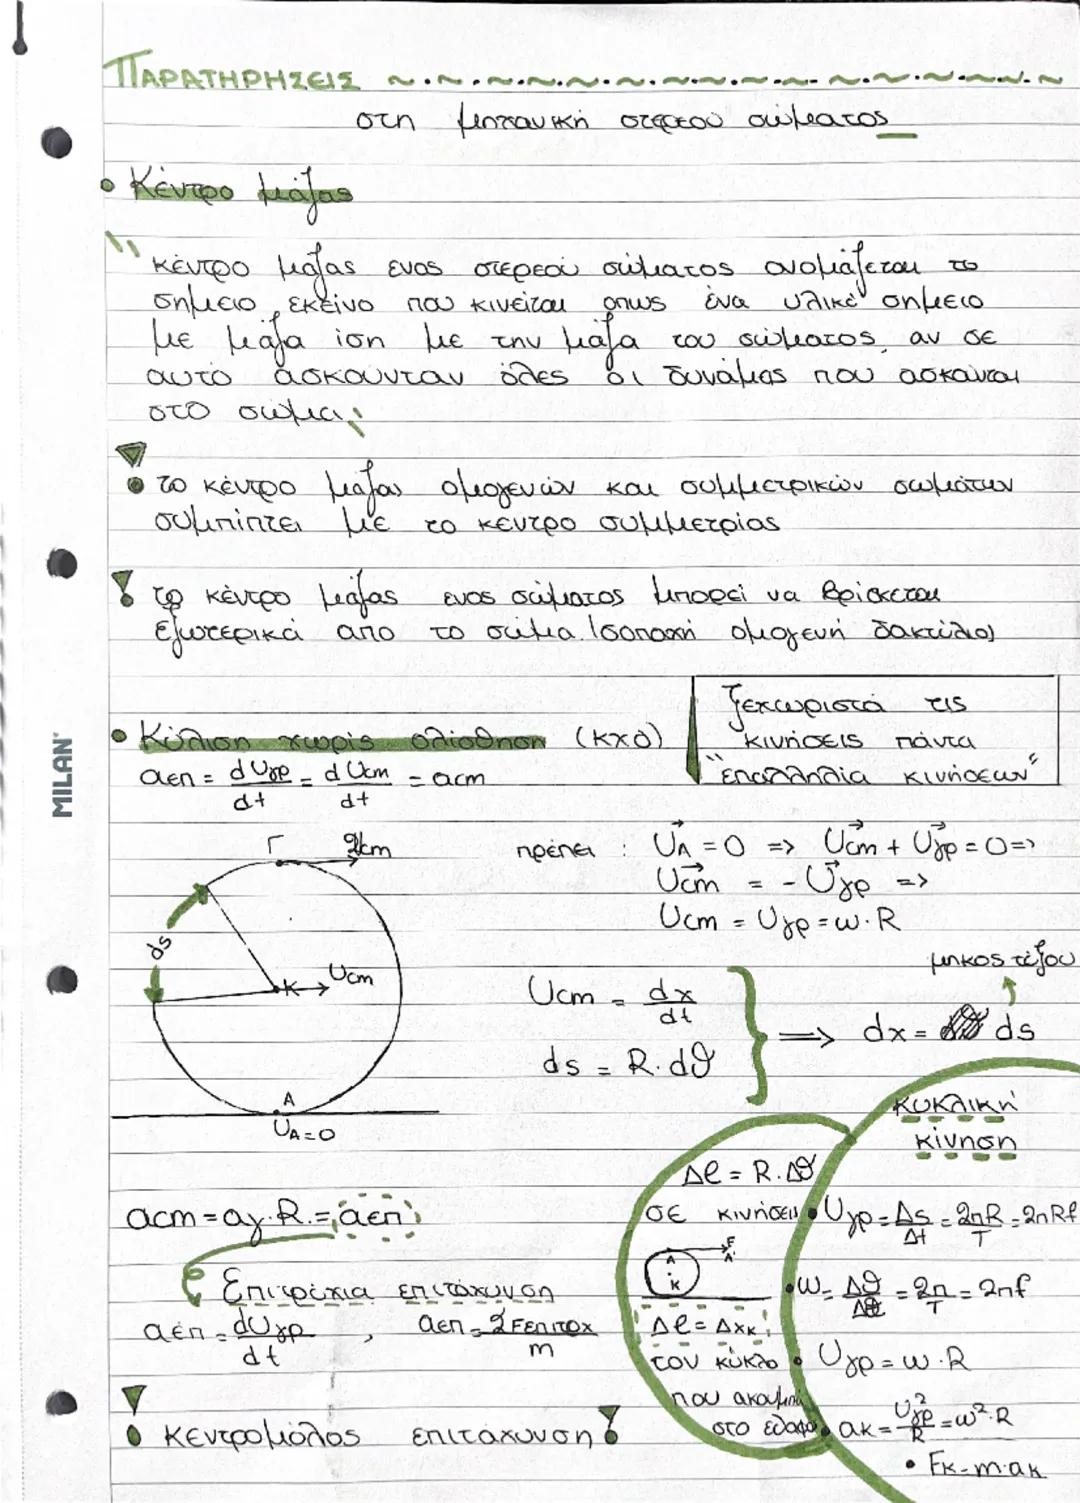 ΠΑΡΑΤΗΡΗΣΕΙΣ
στη μηχανική στερεού σώματος
• Κέντρο μάζας
" κέντρο μάζας ενος στερεού σώματος ονομάζεται το
σημειο εκείνο που κινείται οπως ένα υλικό σημειο
με μάζα ίση με την μάζα του σώματος, αν σε
αυτό ασκούνταν όλες οι δυνάμεις που ασκούνται
στο σώμα "
• το κέντρο μάζας ομογενών και συμμετρικών σωμάτων
συμπίπτει με το κεντρο συμμετρίας
! το κέντρο μάζας ενος σώματος μπορεί να βρίσκεται
εξωτερικά απο το σώμα (ισοπαχή ομογενή δακτύλιο)
Ξεχωριστά τις
κινήσεις πάντα
"επαλληλία κινήσεων"
• Κύλιση χωρίς ολίσθηση (κχο)
αεπ = dUγρ/dt = dUcm/dt = acm
Γ 2Ucm
ds
K Ucm
A
UA=0
πρέπει : UA = 0 => Ucm + Uγρ = 0 =>
Ucm = - Uγρ =>
Ucm = Uγρ = ω·R
μηκος τόξου
Ucm = dx/dt
ds = R·dθ
=> dx = ds
κυκλική
κίνηση
Δl = R·Δθ
σε κινήσεις
A F A'
K
Δl = Δxκ
τον κύκλο
που ακουμπά
στο εδαφος
• Uγρ = Δs/Δt = 2πR/T = 2πRf
• ω = Δθ/Δt = 2π/T = 2πf
• Uγρ = ω·R
• ακ = Uγρ²/R = ω²·R
• Fκ = m·ακ
acm = αγ·R = αεπ
Επιτρόχια επιτάχυνση
αεπ = dUγρ/dt , αεπ = ΣFεπιτοχ/m
! κεντρομόλος επιτάχυνση !
MILAN